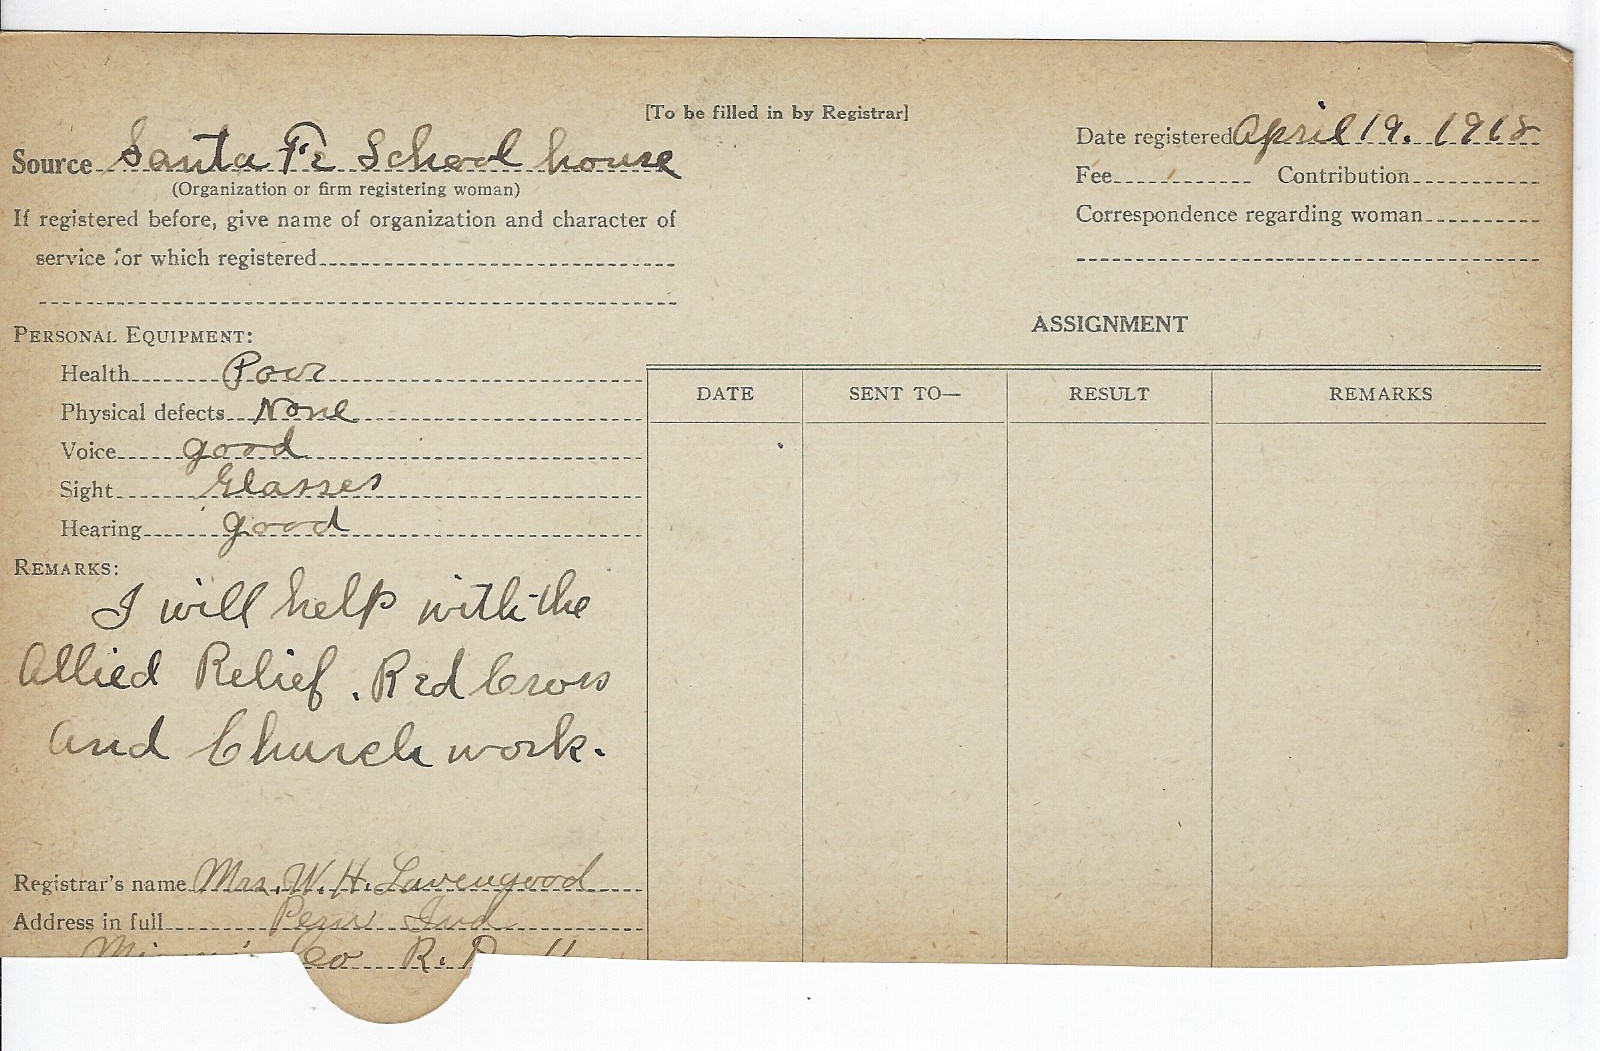 [To be filled in by Registrar]
Source Santa Fe School house
(Organization or firm registering woman)
If registered before, give name of organization and character of
service for which registered
Date registered April 19. 1918
Fee Contribution
Correspondence regarding woman
PERSONAL EQUIPMENT:
Health Poor
Physical defects None
Voice good
Sight Glasses
Hearing good
REMARKS:
I will help with the
Allied Relief. Red Cross
and Church work.
Registrar's name Mrs. W. H. Lavengood
Address in full Peru Ind
Co R.
ASSIGNMENT
DATE SENT TO— RESULT REMARKS